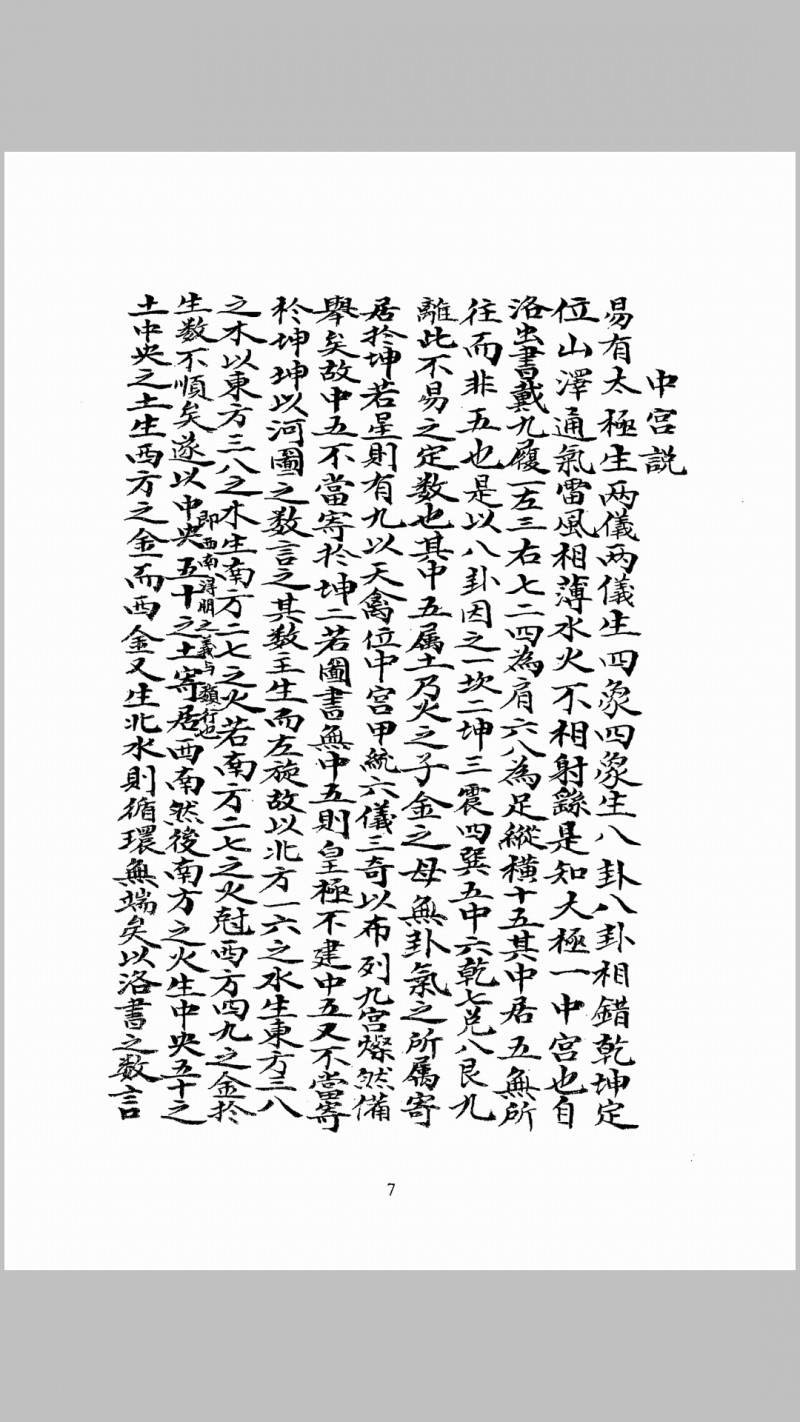 中宮説
易有太極生两儀两儀生四象四象生八卦八卦相錯乾坤定
位山澤通氣雷風相薄水火不相射繇是知太極一中宮也自
洛出書戴九履一左三右七二四為肩六八為足縱横十五其中居五無所
往而非五也是以八卦因之一坎二坤三震四巽五中六乾七兑八艮九
離此不易之定数也其中五属土乃火之子金之母無卦氣之所属寄
居於坤若星則有九以天禽位中宮甲統六儀三奇以布列九宮燦然備
舉矣故中五不當寄於坤二若圖書無中五則皇極不建中五又不當寄
於坤坤以河圖之数言之其数主生而左旋故以北方一六之水生東方三八
之木以東方三八之木生南方二七之火若南方二七之火尅西方四九之金於
生数不順矣遂以中央五十之土寄居西南然後南方之火生中央五十之
即西南得朋之義与類行也
土中央之土生西方之金而西金又生北水則循環無端矣以洛書之数言
7